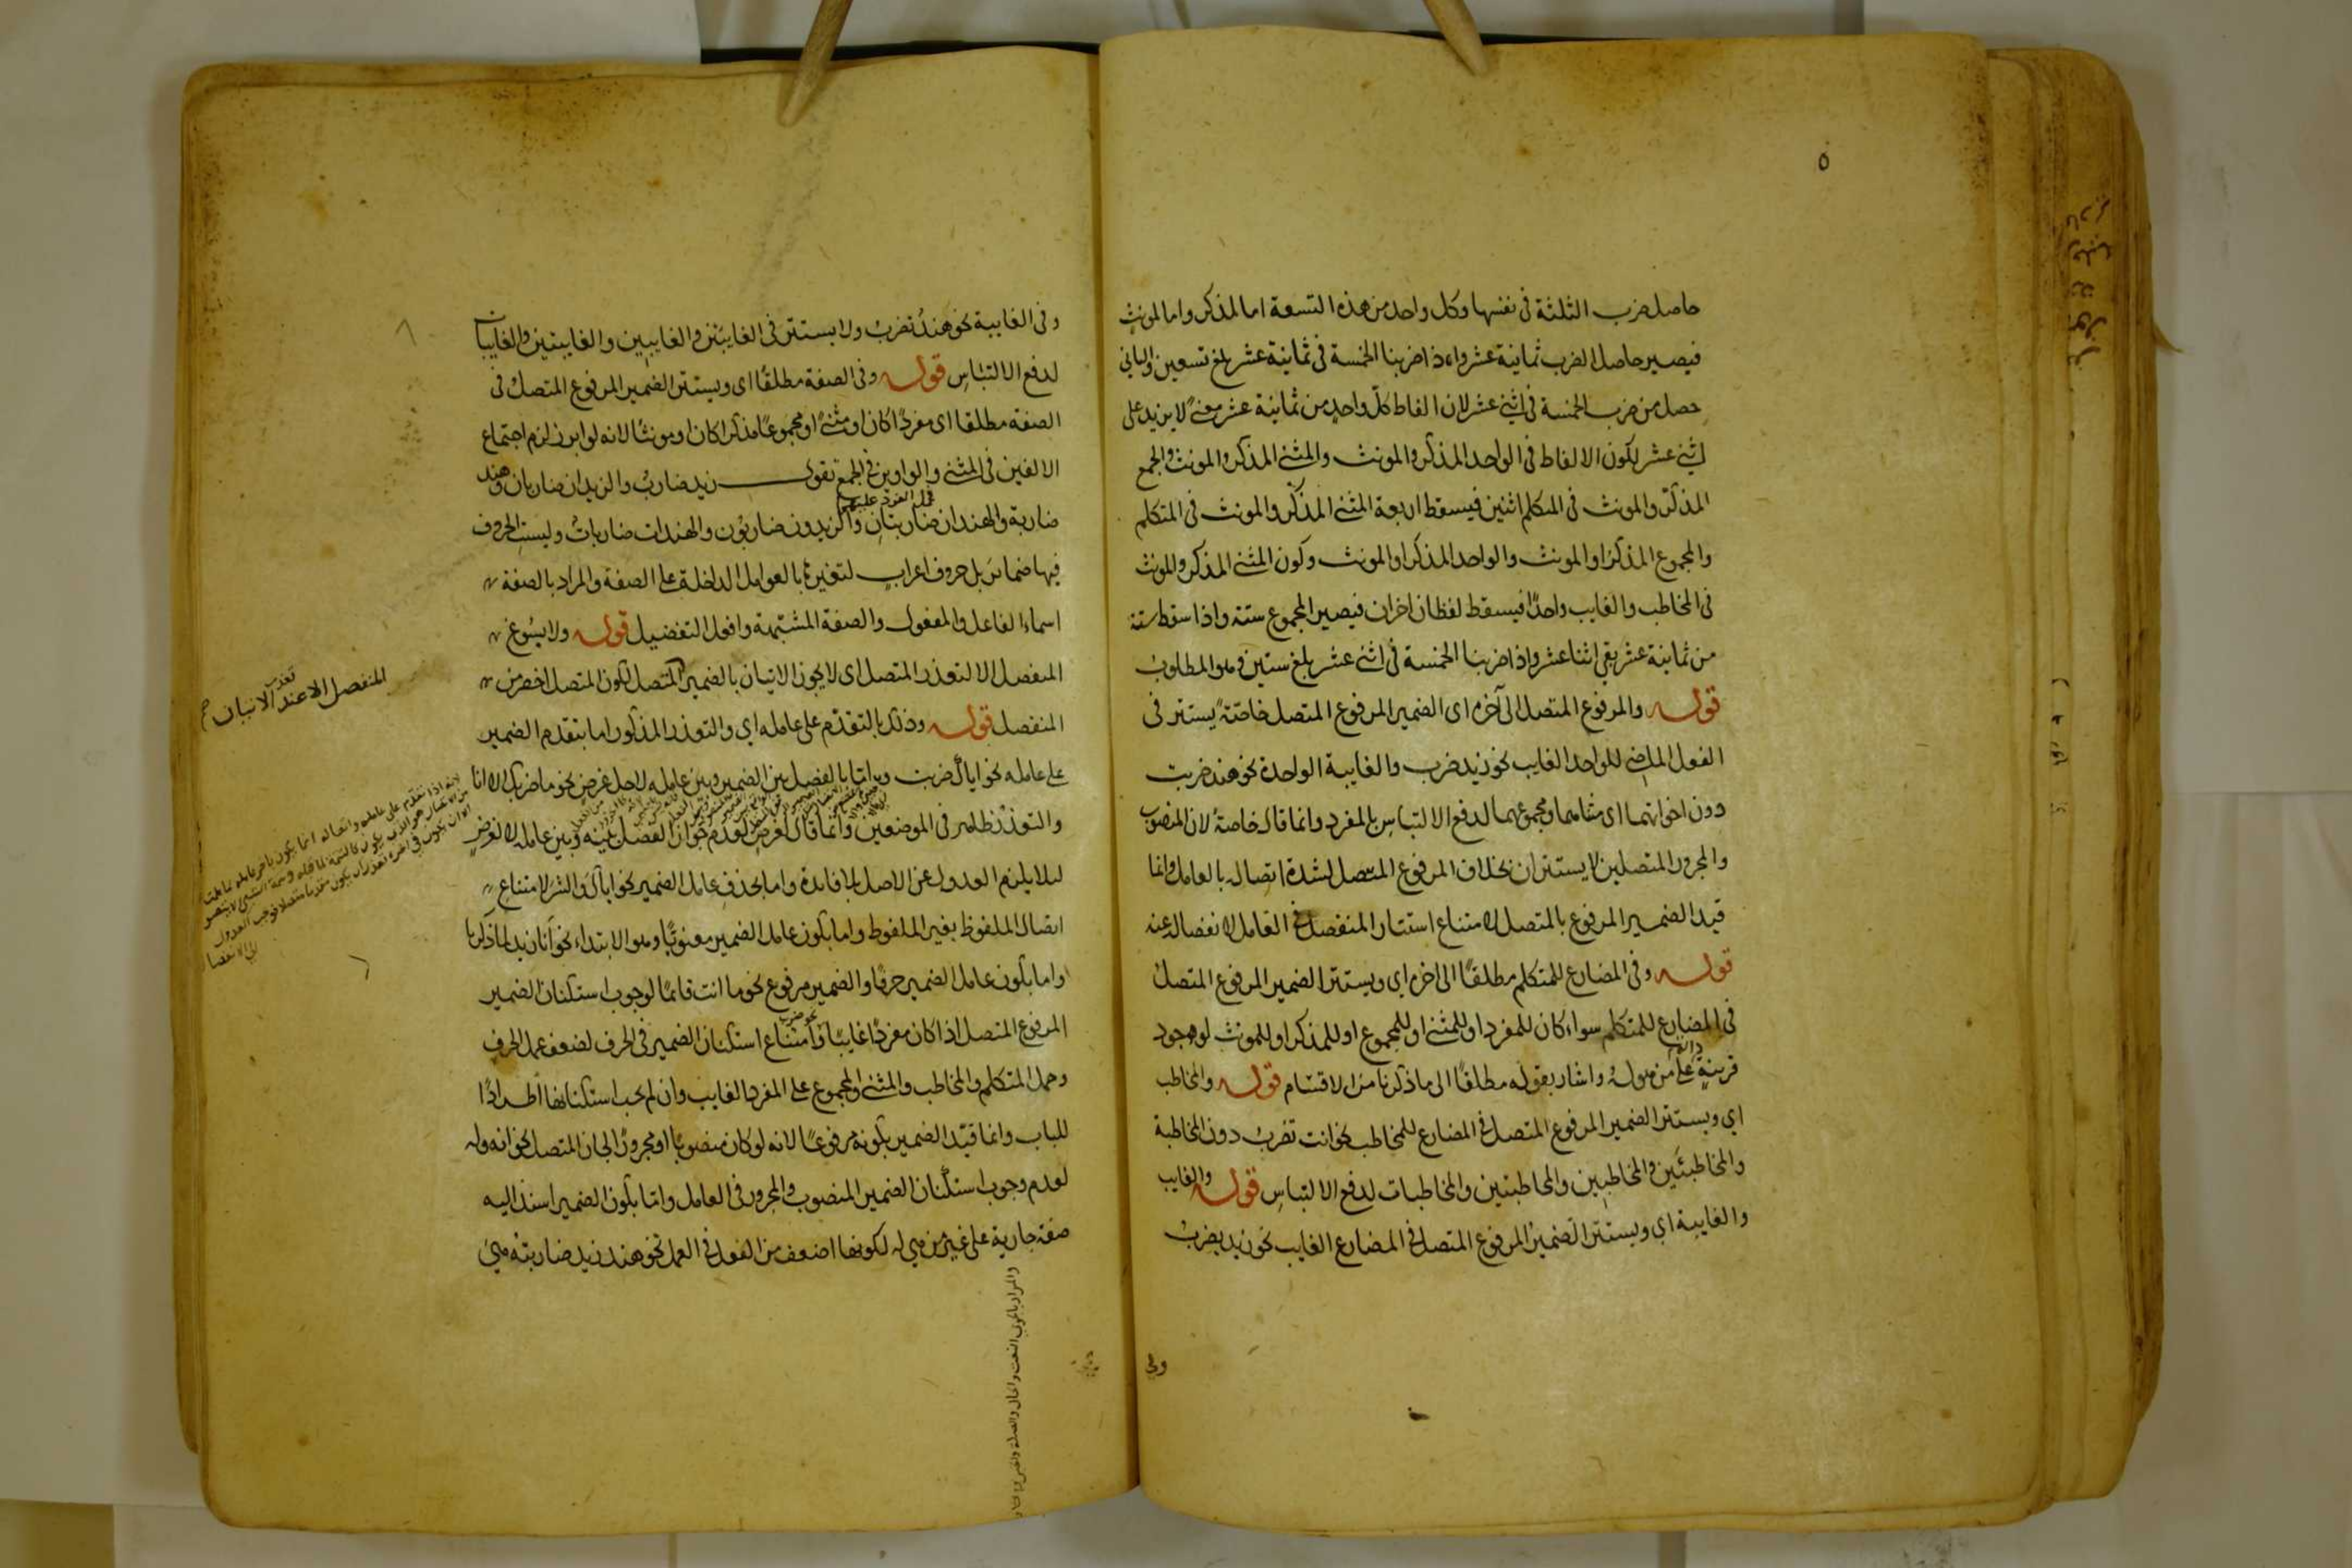 ٥
حاصل ضرب الثلثة فى نفسها وكل واحد من هذه التسعة اما لمذكر واما لمونث
فيصير حاصل الضرب ثمانية عشر واذا ضربنا الخمسة فى ثمانية عشر بلغ تسعين والباقى
حصل من ضرب الخمسة فى اثنى عشر لان الفاظ كل واحد من ثمانية عشر معنًى لا يزيد على
اثنى عشر لكون الالفاظ فى الواحد المذكر والمونث والمثنى المذكر والمونث والجمع
المذكر والمونث فى المتكلم اثنين فيسقط اربعة المثنى المذكر والمونث فى المتكلم
والمجموع المذكر او المونث والواحد المذكر او المونث وكون المثنى المذكر والمونث
فى المخاطب والغايب واحدًا فيسقط لفظان اخران فيصير المجموع ستة واذا سقط ستة
من ثمانية عشر بقى اثنا عشر واذا ضربنا الخمسة فى اثنى عشر بلغ ستين وهو المطلوب
قوله والمرفوع المتصل الى آخره اى الضمير المرفوع المتصل خاصّةً يستتر فى
الفعل الماضى للواحد الغايب نحو زيد ضرب والغايبة الواحدة نحو هند ضربت
دون اخواتهما اى مثناهما ومجموعهما لدفع الالتباس بالمفرد وانما قال خاصة لان المنصوب
والمجرور المتصلين لا يستتران بخلاف المرفوع المتصل لشدة اتصاله بالعامل وانما
قيد الضمير المرفوع بالمتصل لامتناع استتار المنفصل فى العامل لانفصاله عنه
قوله وفى المضارع للمتكلم مطلقًا الى اخره اى ويستتر الضمير المرفوع المتصل
فى المضارع للمتكلم سواء كان للمفرد او للمثنى او للمجموع او للمذكر او للمونث لوجود
قرينة دالة على من هو له واشار بقوله مطلقًا الى ما ذكرنا من الاقسام قوله والمخاطب
اى ويستتر الضمير المرفوع المتصل فى المضارع للمخاطب نحو انت تضرب دون المخاطبة
والمخاطبَين والمخاطبِين والمخاطبتين والمخاطبات لدفع الالتباس قوله والغايب
والغايبة اى ويستتر الضمير المرفوع المتصل فى المضارع الغايب نحو زيد يضرب
وفى
وفى الغايبة نحو هندٌ تضرب ولا يستتر فى الغايبَين والغايبِين والغايبتين والغايبات
لدفع الالتباس قوله وفى الصفة مطلقًا اى ويستتر الضمير المرفوع المتصل فى
الصفة مطلقا اى مفردًا كان او مثنًى او مجموعًا مذكرا كان او مونثًا لانه لو ابرز لزم اجتماع
الالفين فى المثنى والواوين فى الجمع تقول زيد ضارب والزيدان ضاربان وهند
ضاربة والهندان ضاربتان والزيدون ضاربون والهندات ضاربات وليست الحروف
فيها ضماير بل حروف اعراب لتغيرها بالعوامل الداخلة على الصفة والمراد بالصفة
اسماء الفاعل والمفعول والصفة المشبهة وافعل التفضيل قوله ولا يسوغ
المنفصل الا لتعذر المتصل اى لا يجوز الاتيان بالضمير المتصل لكون المتصل اخصر من
المنفصل قوله وذلك بالتقدّم على عامله اي والتعذر المذكور اما بتقدم الضمير
على عامله نحو اياك ضربت واما بالفصل بين الضمير وبين عامله لاجل غرض نحو ما ضربك الا انا
والتعذر ظاهر فى الموضعين وانما قال لغرض لعدم جواز الفصل بينه وبين عامله لا لغرض
ليلا يلزم العدول عن الاصل بلا فايدة واما بحذف عامل الضمير نحو اياك والشر لامتناع
اتصال الملفوظ بغير الملفوظ واما بكون عامل الضمير معنويًا وهو الابتداء نحو انا زيد لما ذكرنا
واما بكون عامل الضمير حرفًا والضمير مرفوع نحو ما انت قائمًا لوجوب استكنان الضمير
المرفوع المتصل اذا كان مفردًا غايبًا وامتناع استكنان الضمير فى الحرف لضعف عمل الحرف
وحمل المتكلم والمخاطب والمثنى والمجموع على المفرد الغايب وان لم يجب استكنانها اطرادًا
للباب وانما قيّد الضمير بكونه مرفوعًا لانه لو كان منصوبًا او مجرورًا لجاز المتصل نحو انه وله
لعدم وجوب استكنان الضمير المنصوب والمجرور فى العامل واما بكون الضمير اسند اليه
صفة جارية على غير من هى له لكونها اضعف من الفعل فى العمل نحو هند زيد ضاربته هى
المنفصل الا عند تعذر الاتيان
والمراد بالجرى النعت والحال والصلة والخبر